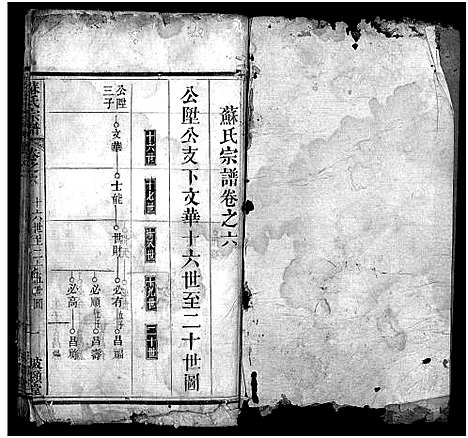 蘇氏宗譜卷之六
公陞公支下文華十六世至二十世圖
十六世 十七世 十八世 十九世 二十世
公陞三子 文華 士能 世財 必有 昌
必順 昌壽
必高 昌
蘇氏宗譜 卷之六 十六世至二十世圖 一